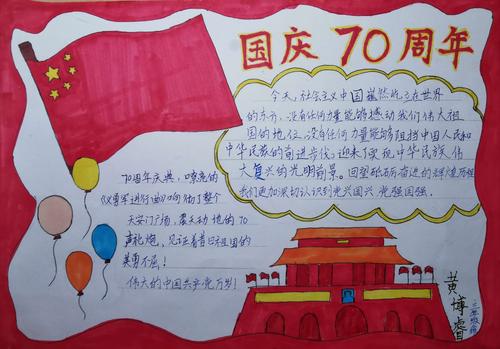 国庆70周年
今天,社会主义中国巍然屹立在世界
的东方,没有任何力量能够撼动我们伟大祖
国的地位,没有任何力量能够阻挡中国人民和
中华民族的前进步伐,迎来了实现中华民族伟
大复兴的光明前景。回望砥砺奋进的辉煌历程
我们更加深切认识到党兴国兴 党强国强。
70周年庆典,嘹亮的
《义勇军进行曲》响彻了整个
天安门广场,震天动地的70
声礼炮,见证着昔日祖国的
英勇不屈!
伟大的中国共产党万岁!
黄博睿